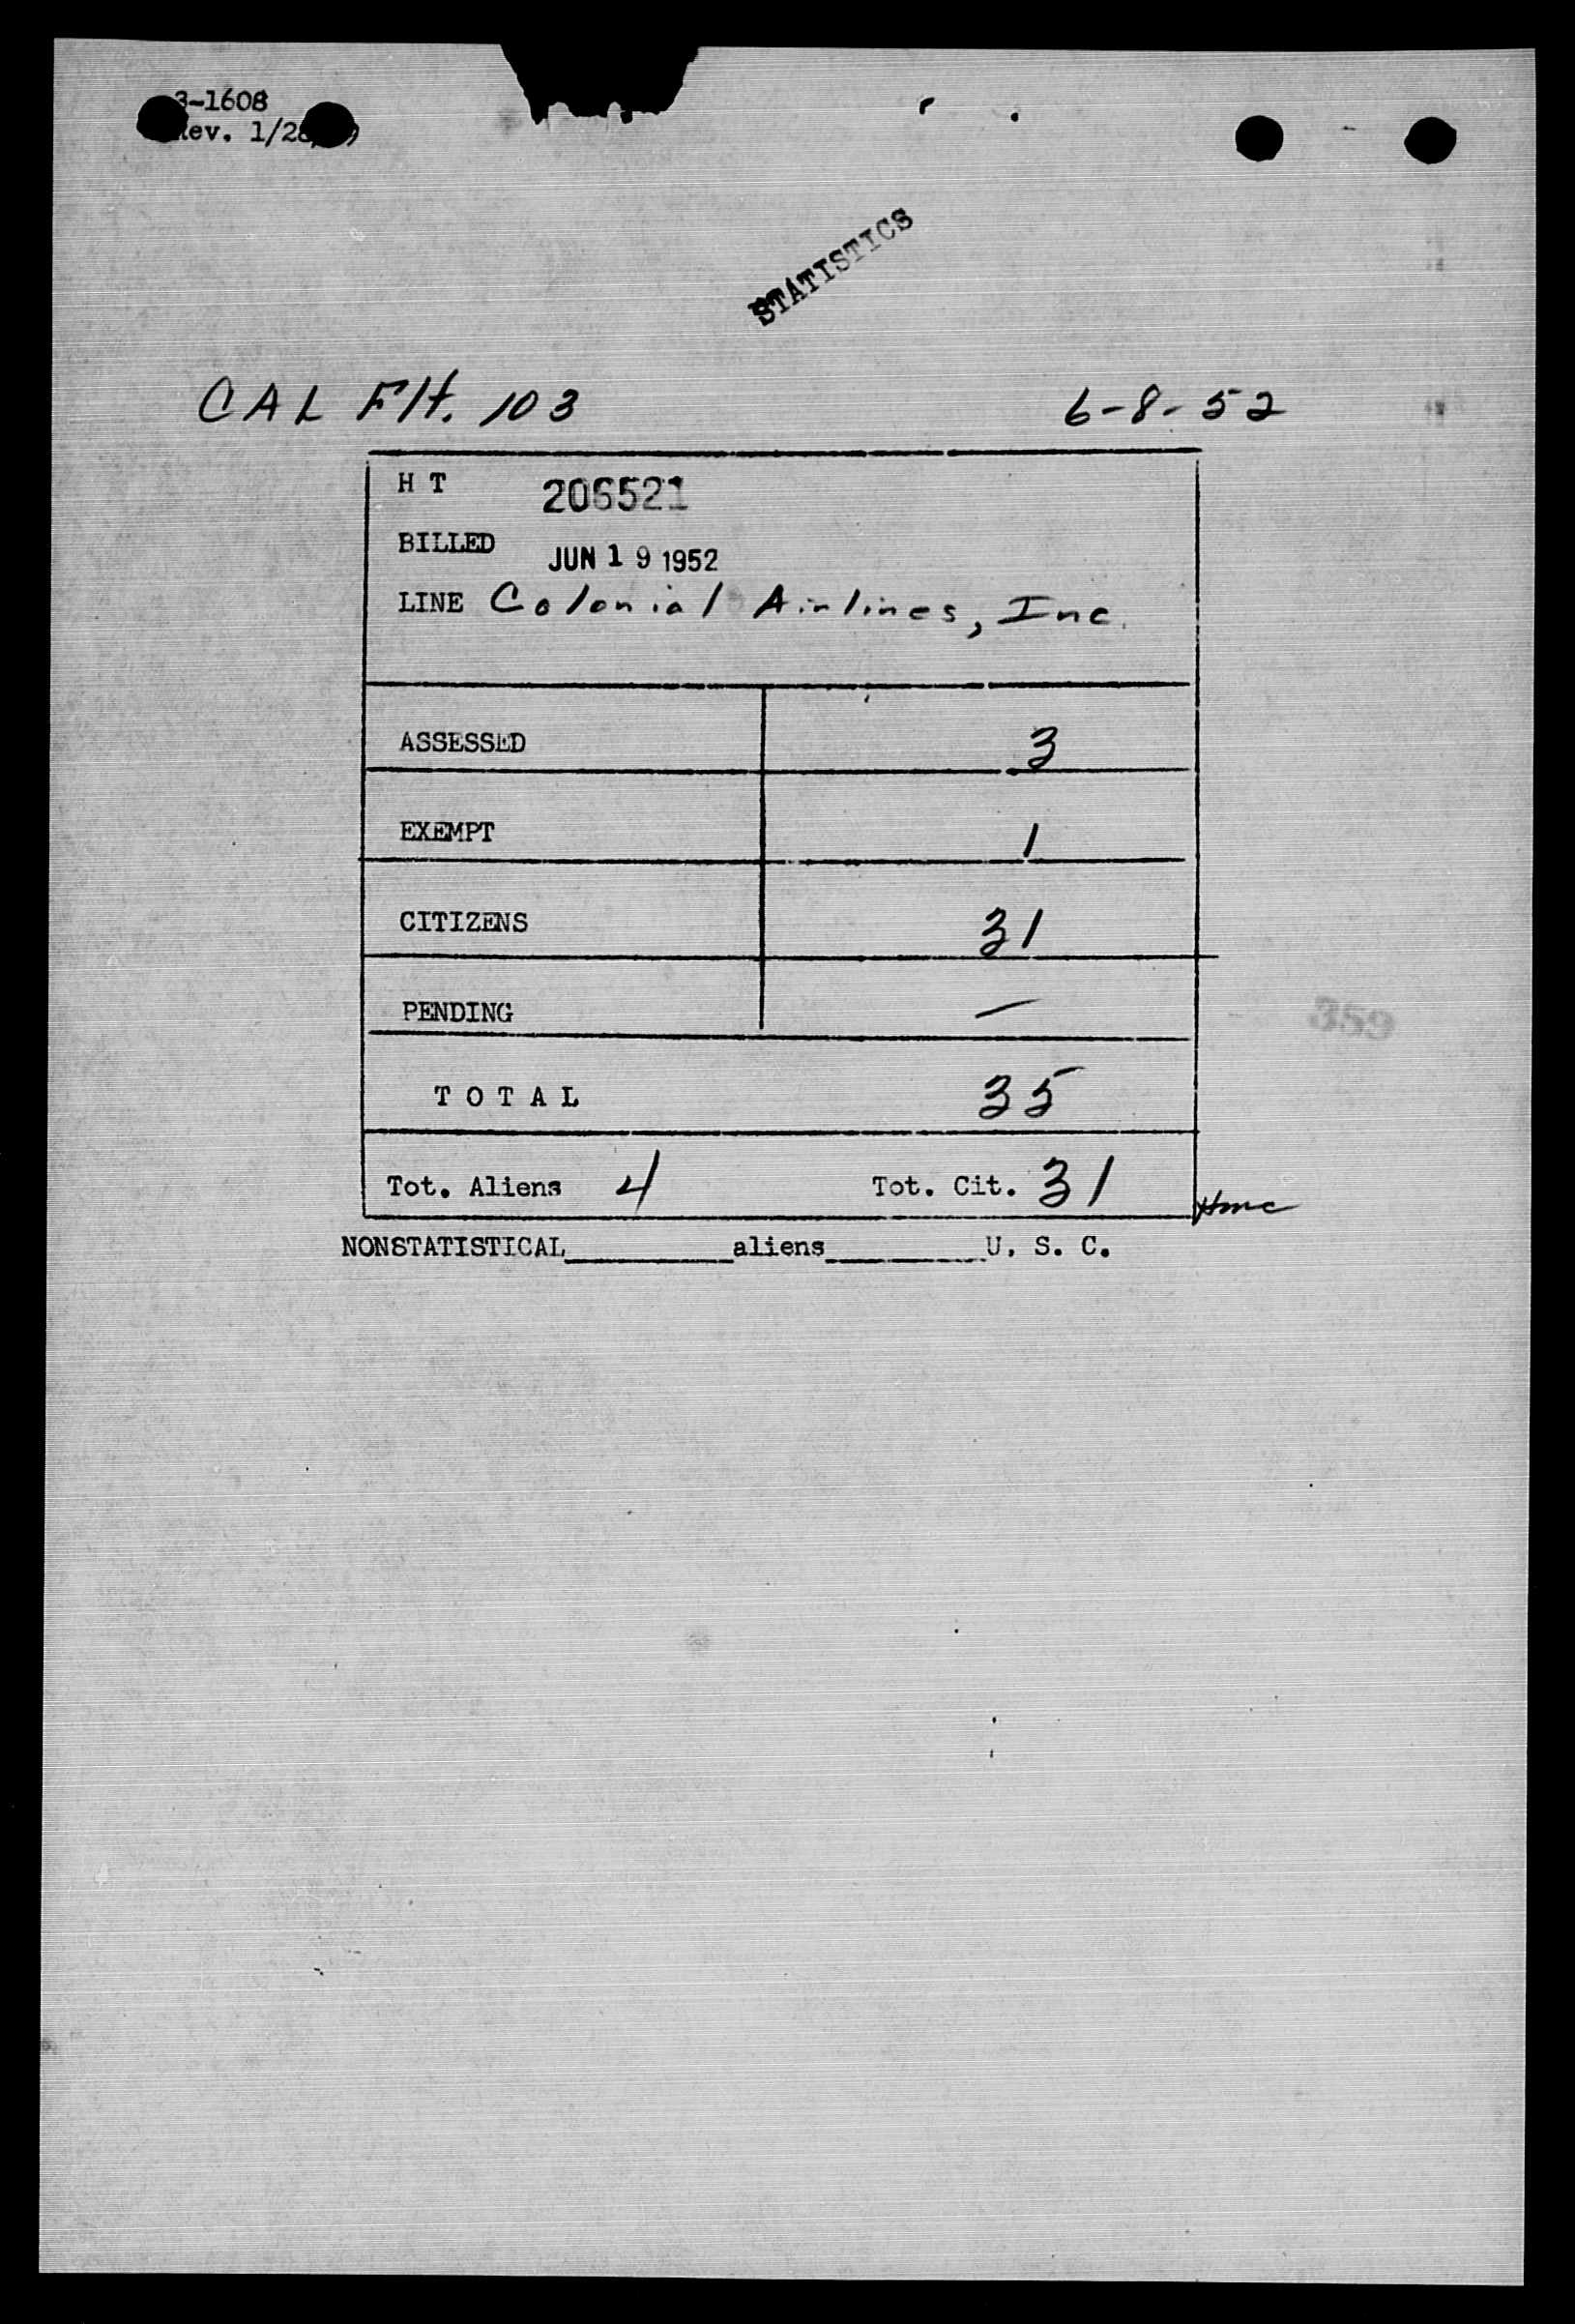 3-1608
Rev. 1/28
STATISTICS
CAL Flt. 103 6-8-52
H T 206521
BILLED JUN 19 1952
LINE Colonial Airlines, Inc.
ASSESSED 3
EXEMPT 1
CITIZENS 31
PENDING —
359
TOTAL 35
Tot. Aliens 4 Tot. Cit. 31
NONSTATISTICAL__________aliens__________U. S. C.